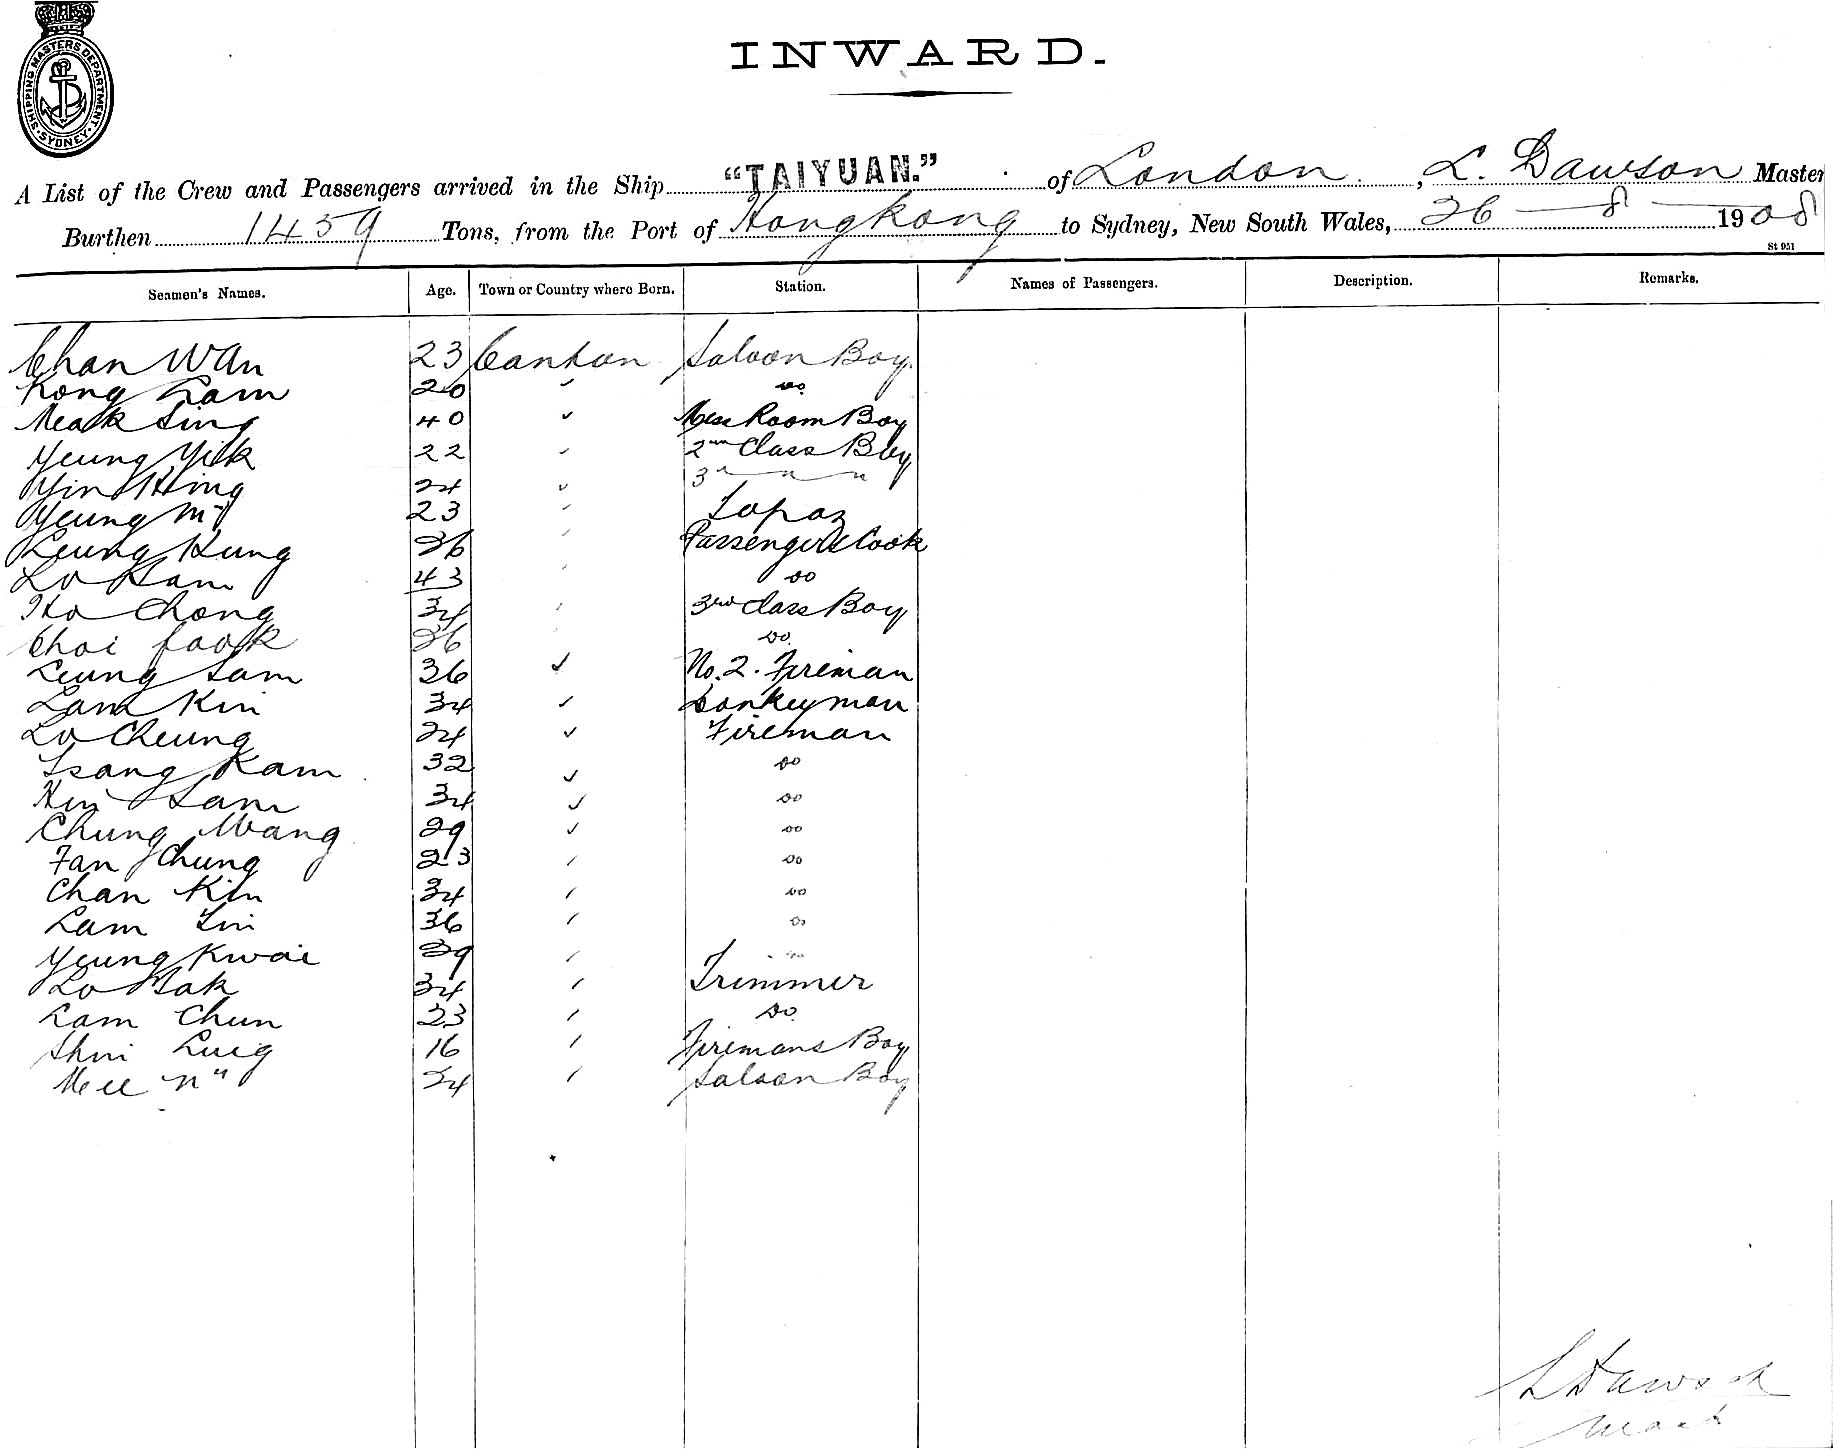 SHIPPING MASTERS DEPARTMENT. SYDNEY.
INWARD.
A List of the Crew and Passengers arrived in the Ship "TAIYUAN." of London, L. Dawson Master
Burthen 1459 Tons, from the Port of Hongkong to Sydney, New South Wales, 26 - 8 - 1908
St 951
Seamen's Names. Age. Town or Country where Born. Station. Names of Passengers. Description. Remarks.
Chan Wan 23 Canton Saloon Boy
Kong Lam 20 " do
Meak Sing 40 " Mess Room Boy
Yeung Yik 22 " 2nd Class Boy
Yin Hing 24 " 3rd " "
Yeung 23 " Topaz
Leung Kung 36 " Passengers Cook
Lo Kam 43 " do
Ho Chong 34 " 3rd Class Boy
Choi Fook 36 " do
Leung Sam 36 " No. 2. Fireman
Lam Kin 34 " Donkeyman
Lo Cheung 24 " Fireman
Tsang Kam 32 " do
Sam 34 " do
Chung Wang 29 " do
Fan Chung 23 " do
Chan Kin 34 " do
Lam 36 " do
Yeung Kwai 39 " do
Lo 34 " Trimmer
Lam Chun 23 " do
16 " Firemans Boy
Mee 34 " Saloon Boy
L Dawson